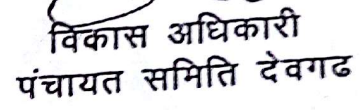 विकास अधिकारी
पंचायत समिति देवगढ